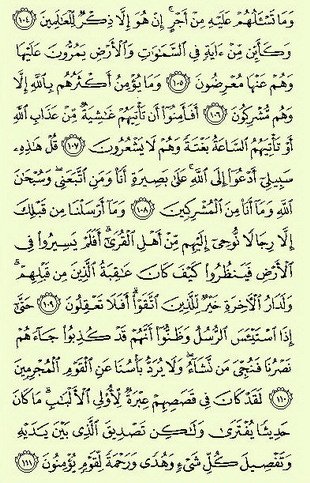 وَمَا تَسْـَٔلُهُمْ عَلَيْهِ مِنْ أَجْرٍ ۚ إِنْ هُوَ إِلَّا ذِكْرٌ لِّلْعَـٰلَمِينَ ١٠٤
وَكَأَيِّن مِّنْ ءَايَةٍ فِى ٱلسَّمَـٰوَٰتِ وَٱلْأَرْضِ يَمُرُّونَ عَلَيْهَا
وَهُمْ عَنْهَا مُعْرِضُونَ ١٠٥ وَمَا يُؤْمِنُ أَكْثَرُهُم بِٱللَّهِ إِلَّا
وَهُم مُّشْرِكُونَ ١٠٦ أَفَأَمِنُوٓا۟ أَن تَأْتِيَهُمْ غَـٰشِيَةٌ مِّنْ عَذَابِ ٱللَّهِ
أَوْ تَأْتِيَهُمُ ٱلسَّاعَةُ بَغْتَةً وَهُمْ لَا يَشْعُرُونَ ١٠٧ قُلْ هَـٰذِهِۦ
سَبِيلِىٓ أَدْعُوٓا۟ إِلَى ٱللَّهِ ۚ عَلَىٰ بَصِيرَةٍ أَنَا۠ وَمَنِ ٱتَّبَعَنِى ۖ وَسُبْحَـٰنَ
ٱللَّهِ وَمَآ أَنَا۠ مِنَ ٱلْمُشْرِكِينَ ١٠٨ وَمَآ أَرْسَلْنَا مِن قَبْلِكَ
إِلَّا رِجَالًا نُّوحِىٓ إِلَيْهِم مِّنْ أَهْلِ ٱلْقُرَىٰٓ ۗ أَفَلَمْ يَسِيرُوا۟ فِى
ٱلْأَرْضِ فَيَنظُرُوا۟ كَيْفَ كَانَ عَـٰقِبَةُ ٱلَّذِينَ مِن قَبْلِهِمْ ۗ
وَلَدَارُ ٱلْـَٔاخِرَةِ خَيْرٌ لِّلَّذِينَ ٱتَّقَوْا۟ ۗ أَفَلَا تَعْقِلُونَ ١٠٩ حَتَّىٰٓ
إِذَا ٱسْتَيْـَٔسَ ٱلرُّسُلُ وَظَنُّوٓا۟ أَنَّهُمْ قَدْ كُذِبُوا۟ جَآءَهُمْ
نَصْرُنَا فَنُجِّىَ مَن نَّشَآءُ ۖ وَلَا يُرَدُّ بَأْسُنَا عَنِ ٱلْقَوْمِ ٱلْمُجْرِمِينَ
١١٠ لَقَدْ كَانَ فِى قَصَصِهِمْ عِبْرَةٌ لِّأُو۟لِى ٱلْأَلْبَـٰبِ ۗ مَا كَانَ
حَدِيثًا يُفْتَرَىٰ وَلَـٰكِن تَصْدِيقَ ٱلَّذِى بَيْنَ يَدَيْهِ
وَتَفْصِيلَ كُلِّ شَىْءٍ وَهُدًى وَرَحْمَةً لِّقَوْمٍ يُؤْمِنُونَ ١١١